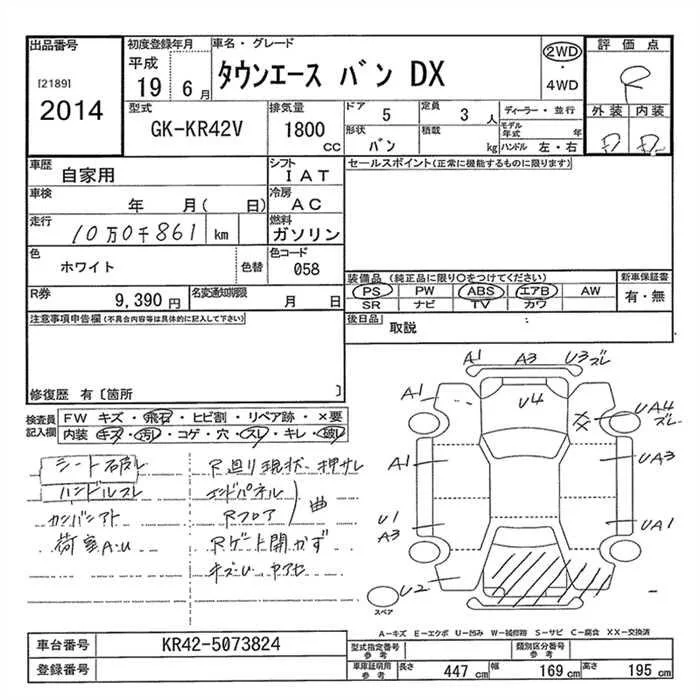 出品番号
[2189]
2014
初度登録年月
平成
19 6月
車名・グレード
タウンエース バン DX
2WD
・
4WD
評価点
R
外装 内装
D D
型式
GK-KR42V
排気量
1800
CC
ドア 5
定員 3人
形状 バン
積載 kg
ディーラー・並行
モデル年式 年
ハンドル 左・右
車歴
自家用
シフト
IAT
車検
年 月( 日)
冷房
AC
走行
10万0千861 km
燃料
ガソリン
色
ホワイト
色替
色コード
058
R券
9,390円
名変通知期限
月 日
セールスポイント(正常に機能するものに限ります)
装備品 (純正品に限り○をつけてください)
PS PW ABS エアB AW
SR ナビ TV カワ
新車保証書
有・無
後日品
取説 :
注意事項申告欄(不具合内容等は具体的に記入して下さい)
修復歴 有〔箇所 〕
検査員記入欄
FW キズ・飛石・ヒビ割・リペア跡・×要
内装 キズ・汚レ・コゲ・穴・スレ・キレ・破レ
シート破レ
ハンドルスレ
カンバンアト
荷室A.U
R廻り現状 押サレ
エンドパネル
Rフロア
曲
Rゲート開かず
キズ・U ヤアセ
A1 A3 U3ズレ
A1 U4 XX UA4ズレ
A1 UA3
U1
A3
UA1
U2
スペア
A-キズ E-エクボ U-凹み W-補修跡 S-サビ C-腐食 XX-交換済
車台番号
KR42-5073824
登録番号
型式指定番号参考
類別区分番号参考
車庫証明用参考
長さ 447cm
幅 169cm
高さ 195cm